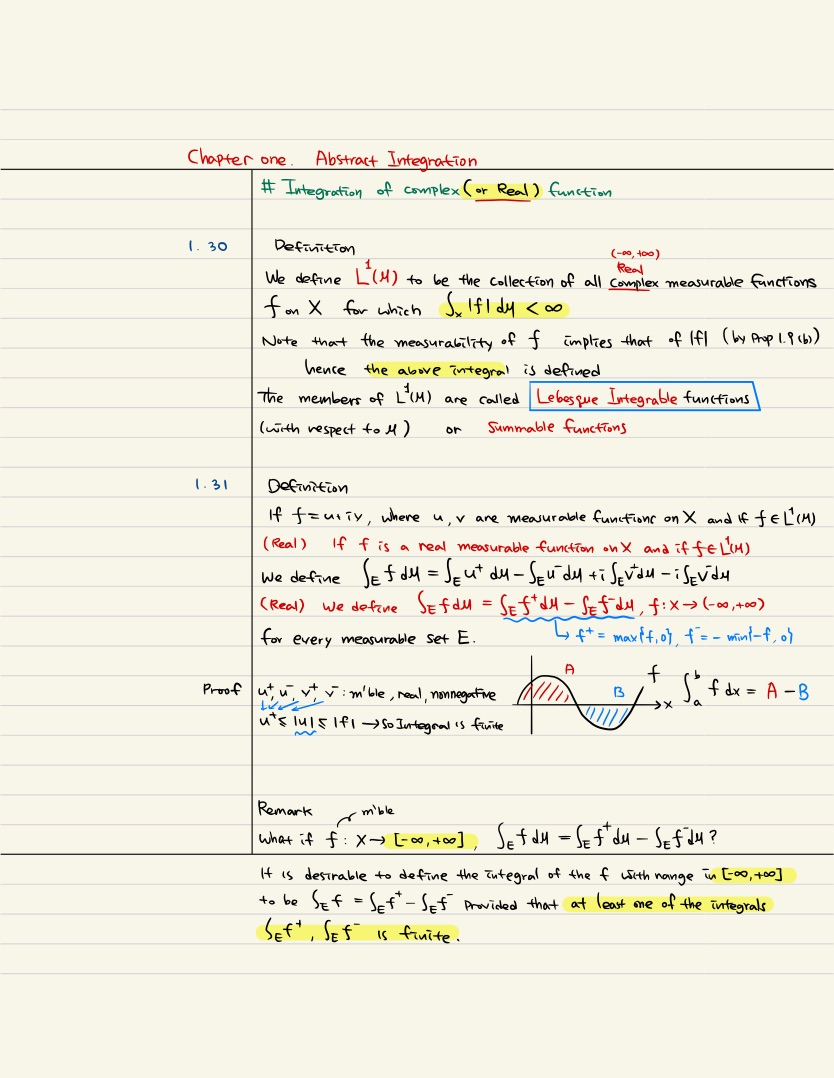 Chapter one. Abstract Integration
# Integration of complex (or Real) function
1.30 Definition
(-∞,+∞)
Real
We define L¹(μ) to be the collection of all complex measurable functions
f on X for which ∫ₓ |f| dμ < ∞
Note that the measurability of f implies that of |f| (by Prop 1.9 (b))
hence the above integral is defined
The members of L¹(μ) are called Lebesque Integrable functions
(with respect to μ) or Summable functions
1.31 Definition
If f = u+iv, where u, v are measurable functions on X and if f ∈ L¹(μ)
(Real) If f is a real measurable function on X and if f ∈ L¹(μ)
We define ∫_E f dμ = ∫_E u⁺ dμ - ∫_E u⁻ dμ + i ∫_E v⁺ dμ - i ∫_E v⁻ dμ
(Real) We define ∫_E f dμ = ∫_E f⁺ dμ - ∫_E f⁻ dμ, f: X → (-∞,+∞)
for every measurable set E. ↳ f⁺ = max{f, 0}, f⁻ = - min{-f, 0}
Proof u⁺, u⁻, v⁺, v⁻ : m'ble, real, nonnegative
u⁺ ≤ |u| ≤ |f| → so Integral is finite
A B f x ∫ₐᵇ f dx = A - B
Remark
m'ble
What if f : X → [-∞,+∞], ∫_E f dμ = ∫_E f⁺ dμ - ∫_E f⁻ dμ ?
It is desirable to define the integral of the f with range in [-∞,+∞]
to be ∫_E f = ∫_E f⁺ - ∫_E f⁻ provided that at least one of the integrals
∫_E f⁺, ∫_E f⁻ is finite.